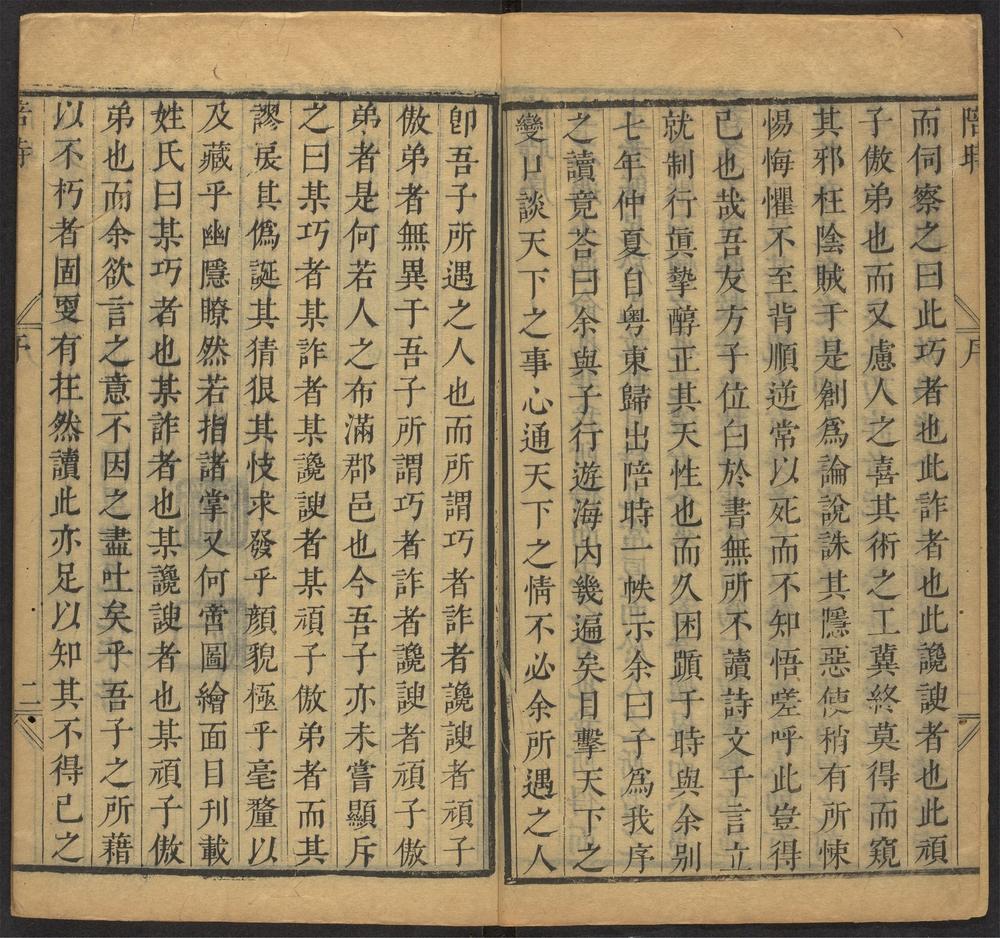 而伺察之曰此巧者也此詐者也此讒諛者也此頑
子傲弟也而又慮人之喜其術之工冀終莫得而窺
其邪枉陰賊于是創為論說誅其隱惡使稍有所悚
惕悔懼不至背順逆常以死而不知悟嗟呼此豈得
已也哉吾友方子位白於書無所不讀詩文千言立
就制行眞摯醇正其天性也而久困躓于時與余別
七年仲夏自粵東歸出陪時一帙示余曰子為我序
之讀竟荅曰余與子行遊海內幾遍矣目擊天下之
變口談天下之事心通天下之情不必余所遇之人
卽吾子所遇之人也而所謂巧者詐者讒諛者頑子
傲弟者無異于吾子所謂巧者詐者讒諛者頑子傲
弟者是何若人之布滿郡邑也今吾子亦未嘗顯斥
之曰某巧者某詐者某讒諛者某頑子傲弟者而其
謬戾其僞誕其猜狠其忮求發乎顏貌極乎毫釐以
及藏乎幽隱瞭然若指諸掌又何啻圖繪面目刊載
姓氏曰某巧者也某詐者也某讒諛者也某頑子傲
弟也而余欲言之意不因之盡吐矣乎吾子之所藉
以不朽者固更有在然讀此亦足以知其不得已之
陪時
序
二